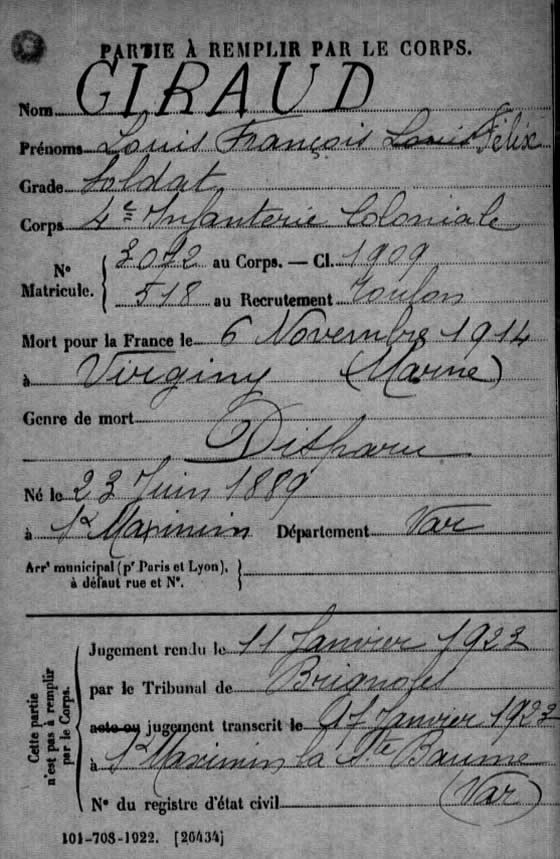 PARTIE À REMPLIR PAR LE CORPS.
Nom GIRAUD
Prénoms Louis François Louis Félix
Grade Soldat
Corps 4e Infanterie Coloniale
N° Matricule. 3072 au Corps. — Cl. 1909
518 au Recrutement Toulon
Mort pour la France le 6 Novembre 1914
à Virginy (Marne)
Genre de mort
Disparu
Né le 23 Juin 1889
à St Maximin Département Var
Arrt municipal (pr Paris et Lyon), à défaut rue et N°.
Cette partie n'est pas à remplir par le Corps.
Jugement rendu le 11 Janvier 1922
par le Tribunal de Brignoles
acte ou jugement transcrit le Janvier 1922
à St Maximin la Ste Baume
N° du registre d'état civil (Var)
101-708-1922. [26434]